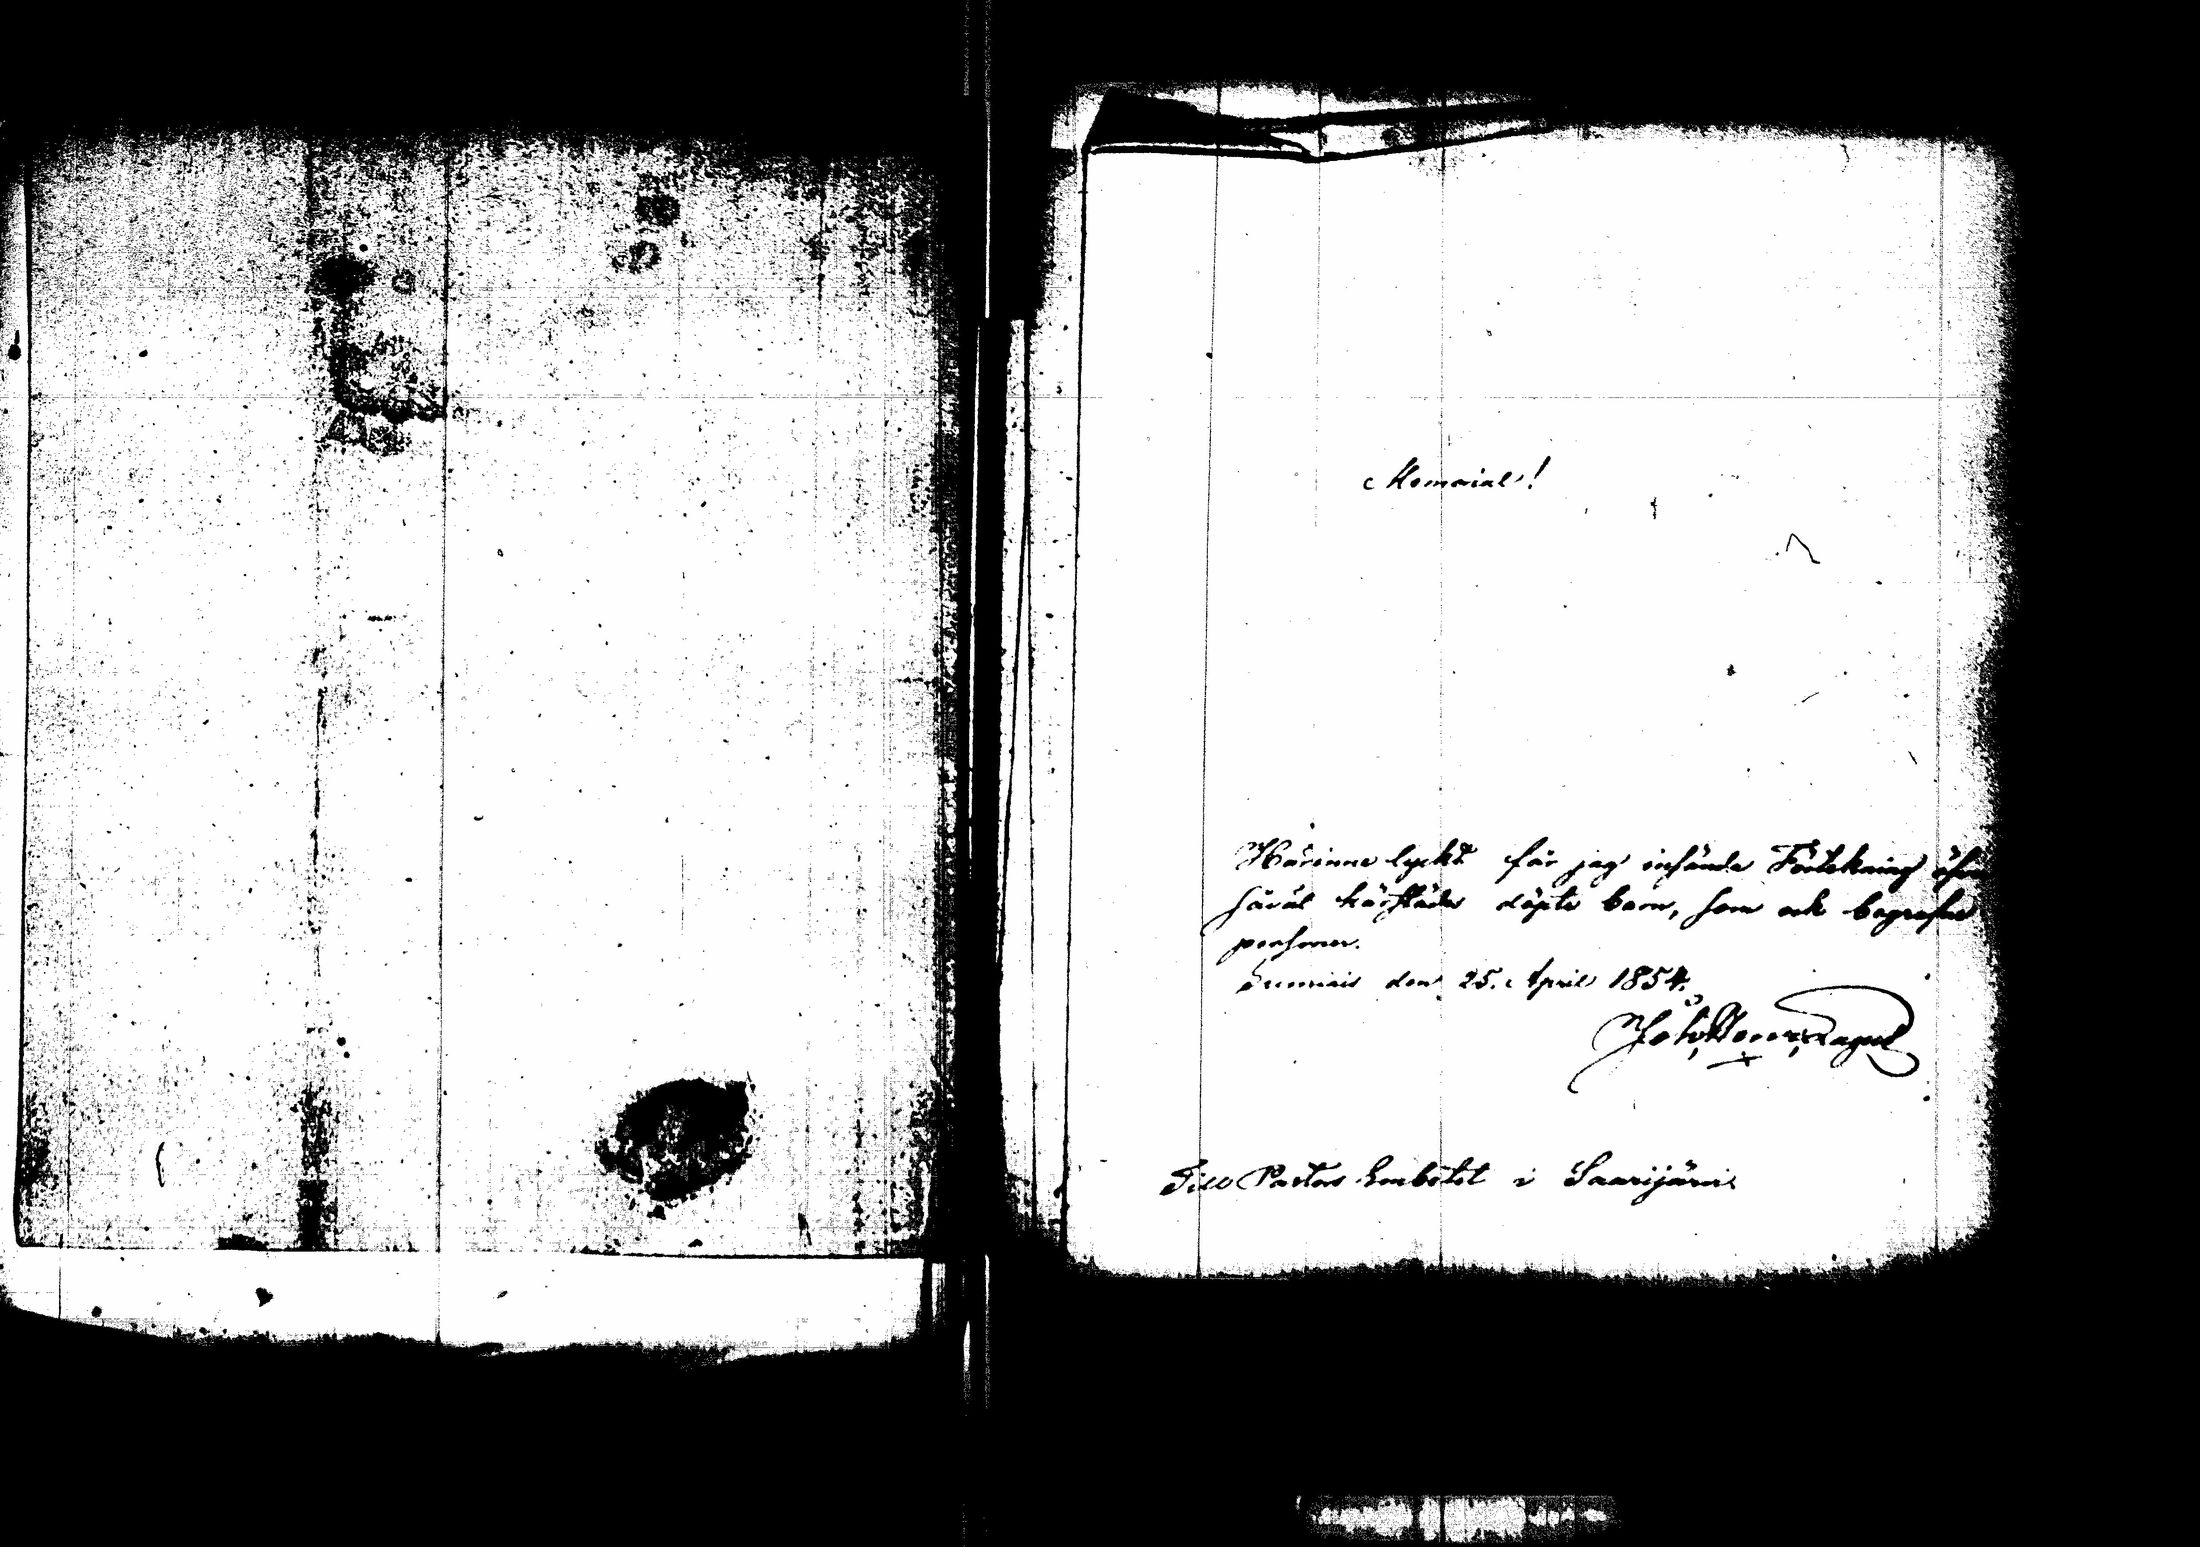 Memorial!
Härinne lyckt får jag insända Förtekning öfver
såväl härstädes döpte barn, som ock begrafne
personer.
Sumiais den 25. April 1854.
Till Pastors Embetet i Saarijärvi